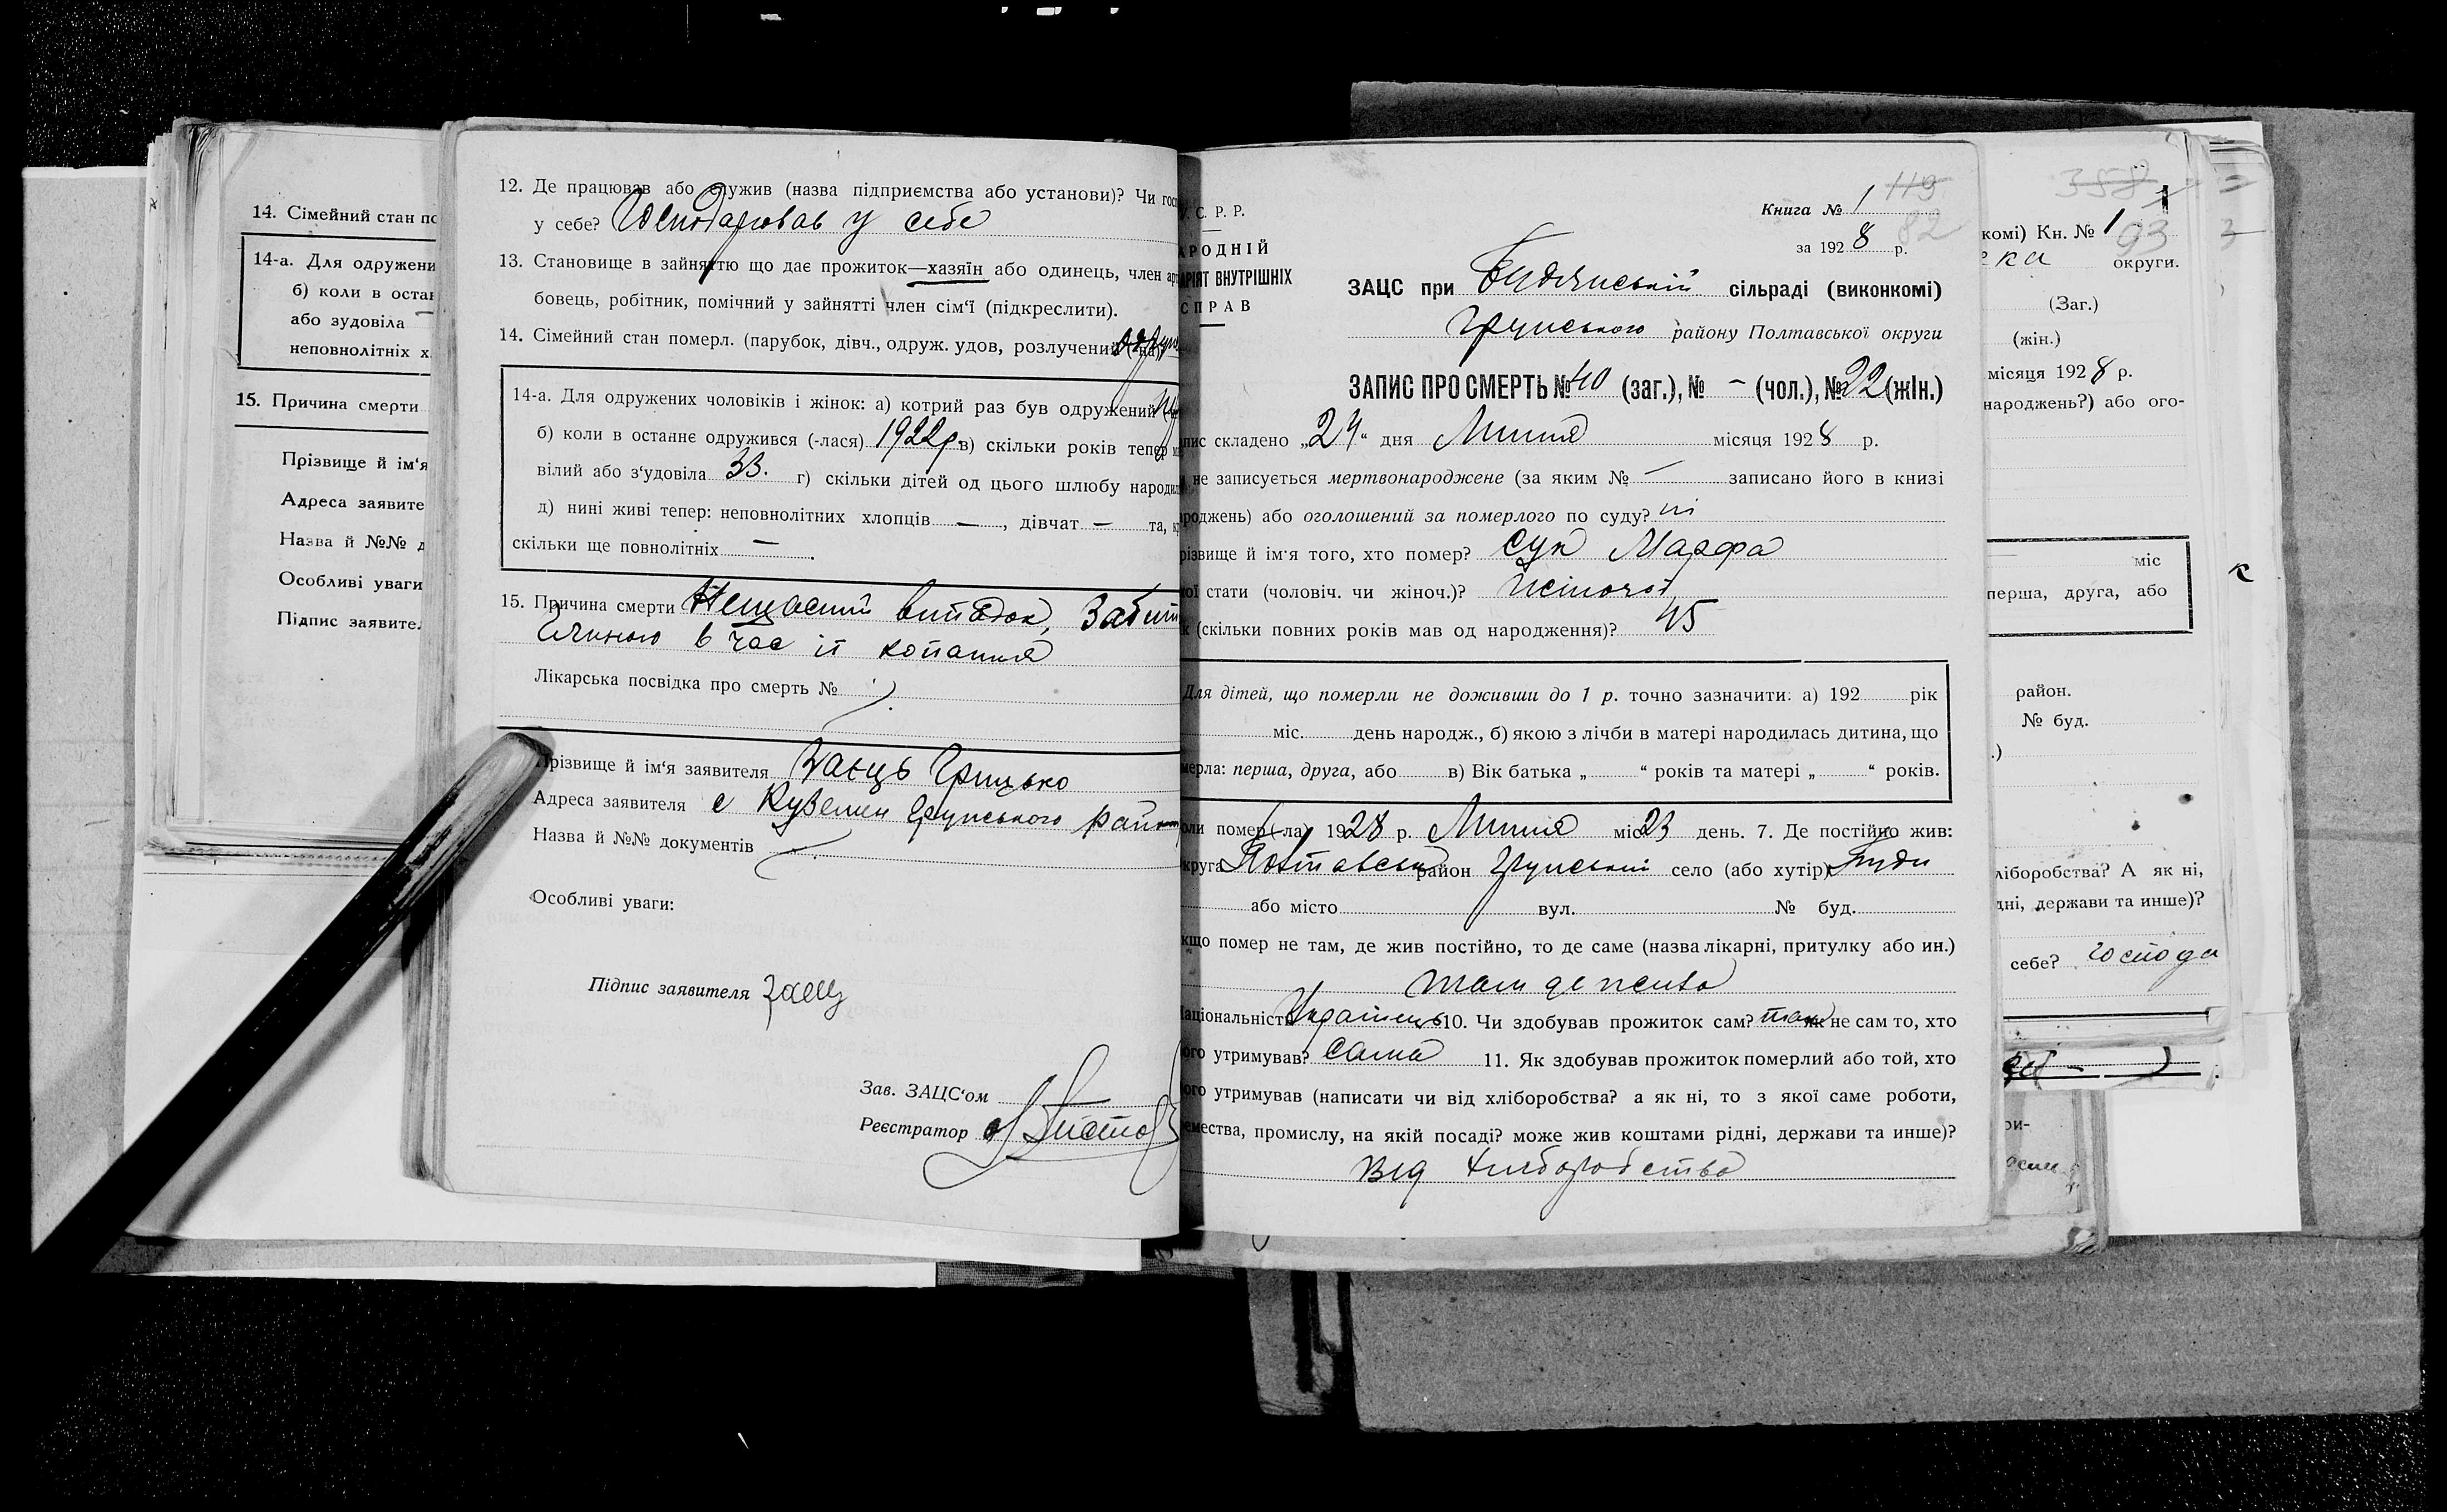 14. Сімейний стан по
14-а. Для одружени
б) коли в остан
або зудовіла
неповнолітніх х
15. Причина смерти
Прізвище й ім‘я
Адреса заявите
Назва й №№ д
Особливі уваги
Підпис заявител
12. Де працював або служив (назва підприємства або установи)? Чи госп
у себе? Господарював у себе
13. Становище в зайняттю що дає прожиток—хазяїн або одинець, член арт
бовець, робітник, помічний у зайнятті член сім‘ї (підкреслити).
14. Сімейний стан померл. (парубок, дівч., одруж. удов, розлучений (-на)
14-а. Для одружених чоловіків і жінок: а) котрий раз був одружений
б) коли в останнє одружився (-лася) 1922р. в) скільки років тепер
вілий або з‘удовіла 33. г) скільки дітей од цього шлюбу народил
д) нині живі тепер: неповнолітних хлопців — , дівчат — та,
скільки ще повнолітніх — .
15. Причина смерти Нещасний випадок, Забит
Глиною в час її копання
Лікарська посвідка про смерть №
Прізвище й ім‘я заявителя Заєць Грицько
Адреса заявителя с Куземен Грунського район
Назва й №№ документів
Особливі уваги:
Підпис заявителя Заец
Зав. ЗАЦС‘ом
Реєстратор
У. С. Р. Р.
АРОДНІЙ
АРІЯТ ВНУТРІШНІХ
СПРАВ
Книга № 1 119
82
за 1928 р.
ЗАЦС при сільраді (виконкомі)
Грунського району Полтавської округи
ЗАПИС ПРО СМЕРТЬ № 40 (заг.), № — (чол.), № 22 (жін.)
пис складено „24“ дня Липня місяця 1928 р.
не записується мертвонароджене (за яким № — записано його в книзі
роджень) або оголошений за померлого по суду? ні
різвище й ім‘я того, хто помер? Сук Марфа
кої стати (чоловіч. чи жіноч.)? Жіночої
к (скільки повних років мав од народження)? 45
Для дітей, що померли не доживши до 1 р. точно зазначити: а) 192 рік
міс. день народж., б) якою з лічби в матері народилась дитина, що
мерла: перша, друга, або в) Вік батька „ “ років та матері „ “ років.
оли помер (-ла) 1928 р. Липня міс 23 день. 7. Де постійно жив:
круга Полтавська район Грунський село (або хутір) Буди
або місто вул. № буд.
кщо помер не там, де жив постійно, то де саме (назва лікарні, притулку або ин.)
там де жила
аціональність Українець 10. Чи здобував прожиток сам? так не сам то, хто
ого утримував? Сама 11. Як здобував прожиток померлий або той, хто
ого утримував (написати чи від хліборобства? а як ні, то з якої саме роботи,
емества, промислу, на якій посаді? може жив коштами рідні, держави та инше)?
від хліборобства
358
1
комі) Кн. № 1 93
ка округи.
(Заг.)
(жін.)
місяця 1928 р.
народжень?) або ого-
міс
перша, друга, або
район.
№ буд.
.)
ліборобства? А як ні,
дні, держави та инше)?
себе? господа